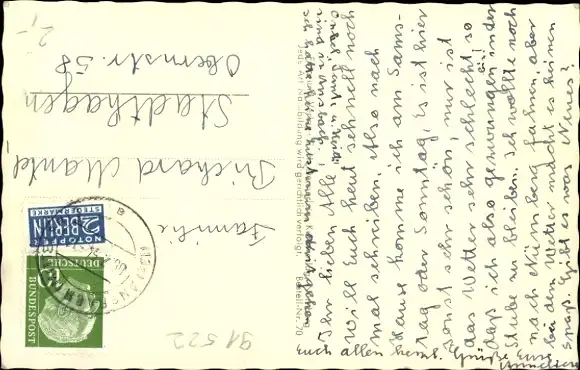 Ihr lieben Alle!
will Euch heut schnell noch
mal schreiben. Also nach
Hause komme ich am Sams-
tag oder Sonntag. Es ist hier
sonst sehr schön, nur ist
das Wetter sehr schlecht, so
daß ich also gezwungen bin! in der
Stube zu bleiben. Ich wollte noch
nach Nürnberg fahren, aber
bei dem Wetter macht es keinen
Spaß. Gibt es was Neues?
Euch allen herzl. Grüße Eure
Annelies
Jede Art Nachbildung wird gerichtlich verfolgt.
Bestell-Nr.
Familie
Richard Mantel,
Stadthagen
Obernstr. 58
2,-
91522
NOTOPFER
2 BERLIN
STEUERMARKE
DEUTSCHE
BUNDESPOST